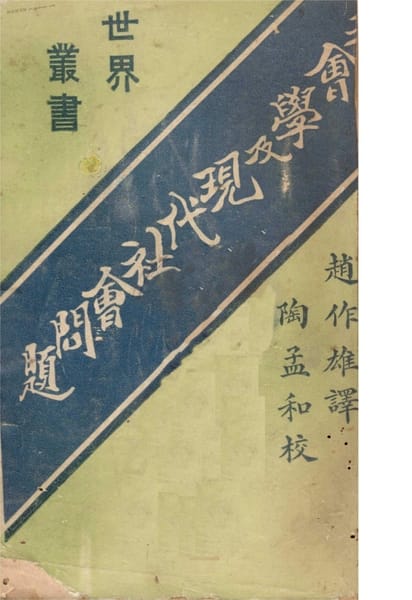 世界
叢書
會學及現代社會問題
趙作雄譯
陶孟和校